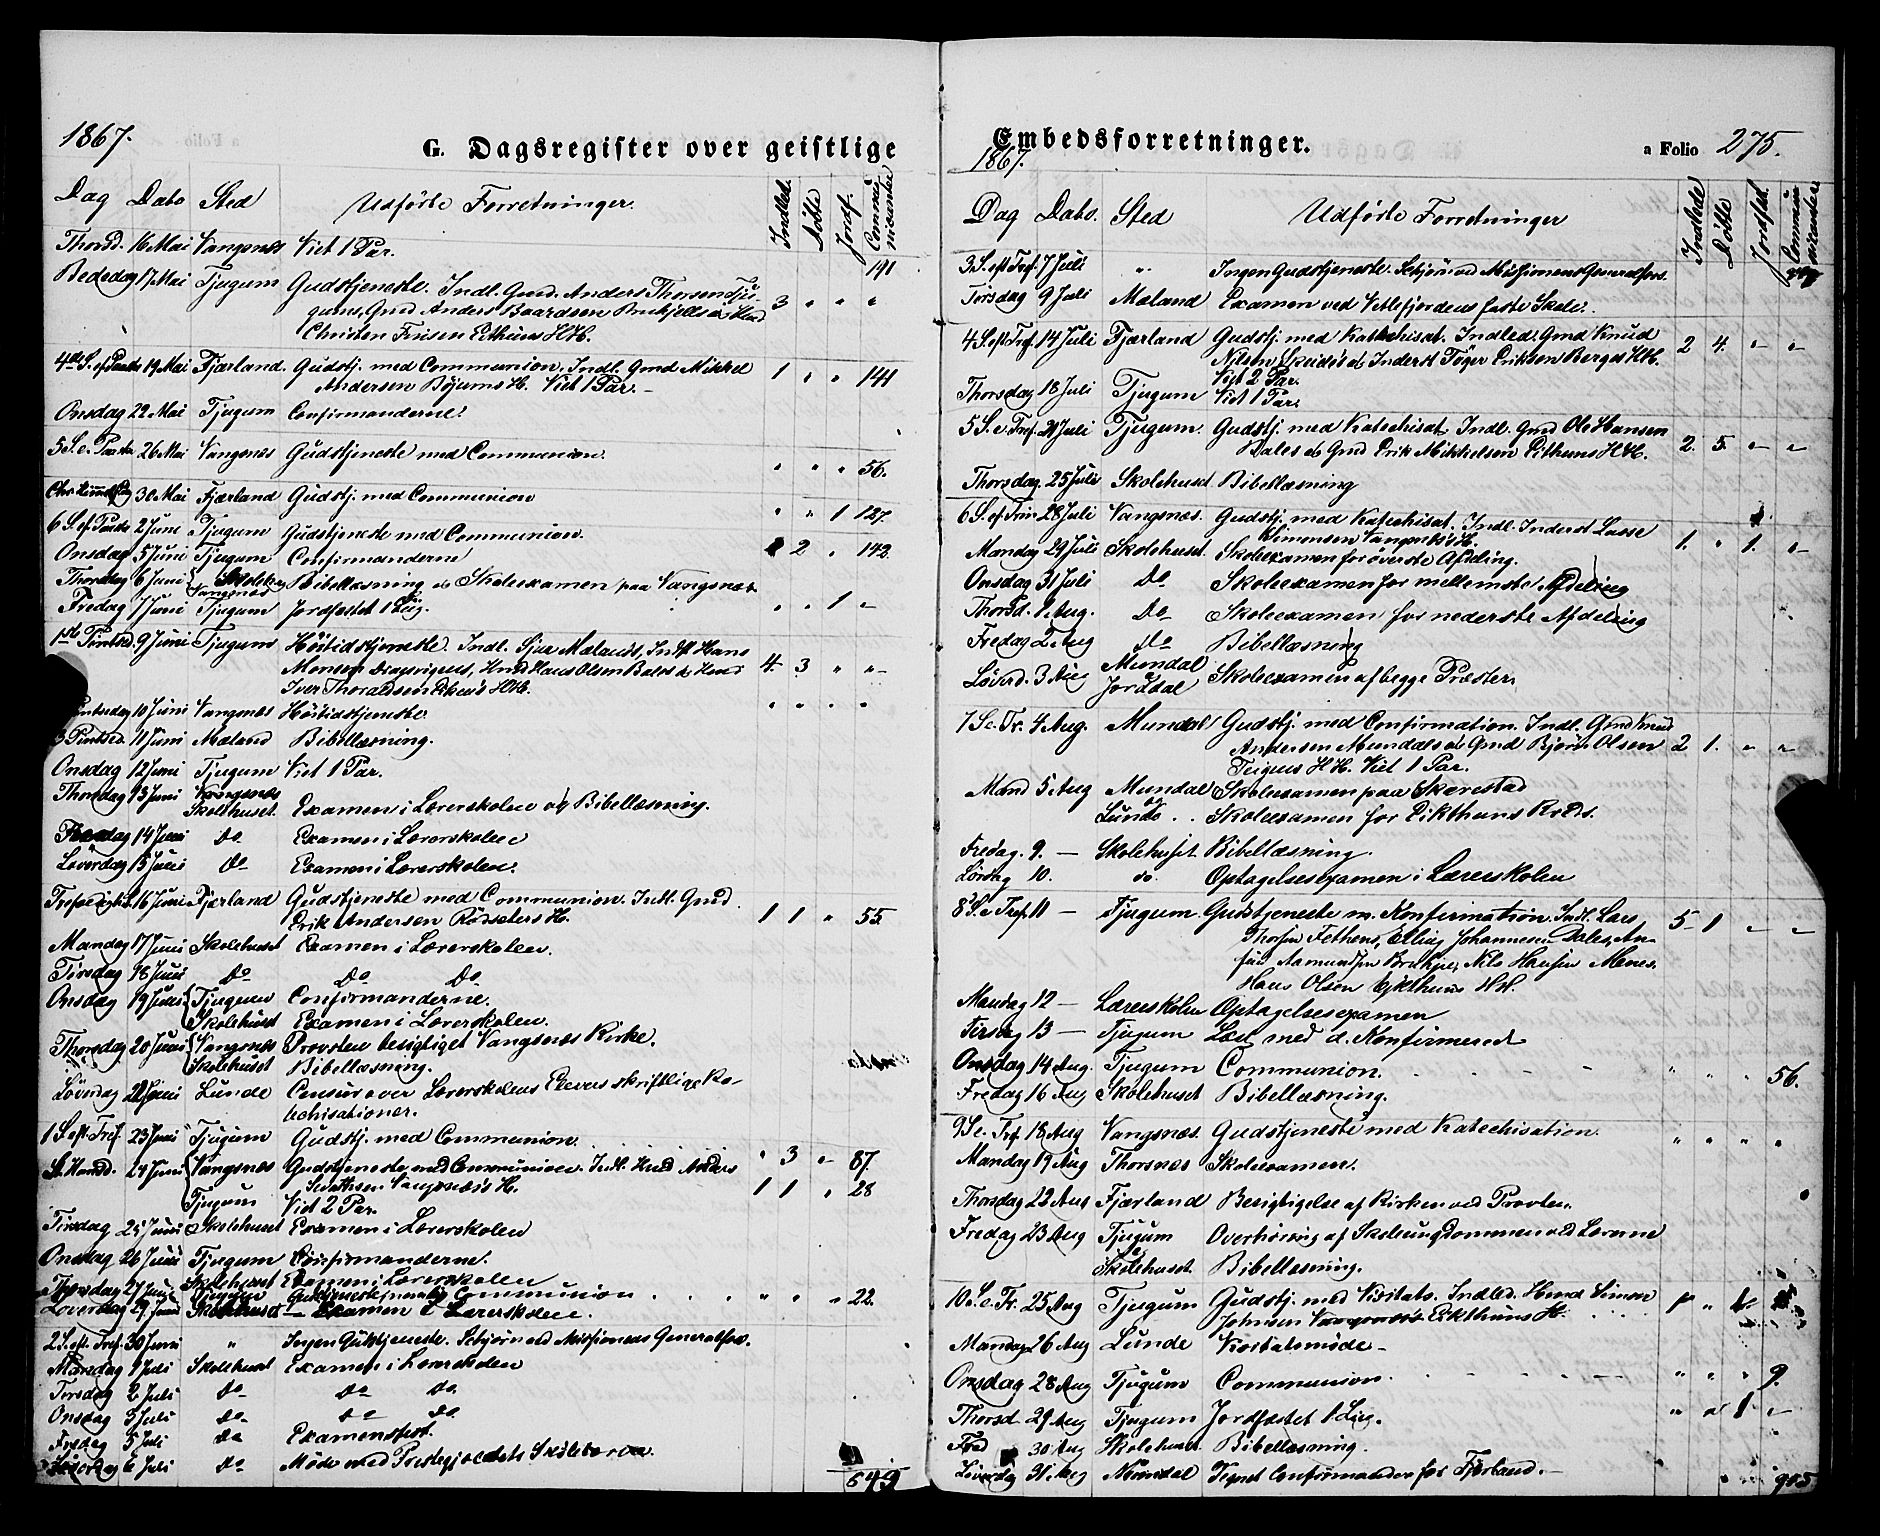 1867.
G. Dagsregister over geistlige
Dag Dato Sted Udførte Forretninger Indled. Døbte Jordf. Communicanter
Thorsd. 16 Mai Vangsnæs Viet 1 Par.
191
Bededag 17 Mai Tjugum Gudstjeneste. Indl. Gmd. Anders Thorsen Tju-
gums, Gmd Anders Baardsen 3 " " "
Christen H H.
4de S. ef Paaske 19 Mai Fjærland Gudstj. med Communion, Indl. Gmd Mikkel 1 " " 141
Andersen Bøjums H. Viet 1 Par. -
Onsdag 22 Mai Tjugum Confirmanderne.
5 S. e. Paaske 26 Mai Vangsnæs Gudstjeneste med Communion. " " " 56.
30 Mai Fjærland Gudstj. med Communion " " 1 127.
6 S. ef. Paaske 2 Juni Tjugum Gudstjeneste med Communion.
Onsdag 5 Juni Tjugum Confirmanderne 2 " 142
Thorsdag 6 Juni Skolehus Vangsnæs Bibellæsning & Skoleexamen paa Vangsnæs
Fredag 7 Juni Tjugum Jordfæstet 1 Liig. " " 1 "
1ste Pintsed. 9 Juni Tjugum Høitidstjeneste. Indl. Mælands, Hans
Monsen Hans Olsen Bales & 4 3 " "
Iver Thoraldsen H H.
Pintsedag 10 Juni Vangsnæs Høitidstjeneste. " " " "
3 Pintsed. 11 Juni Mæland Bibellæsning.
Onsdag 12 Juni Tjugum Viet 1 Par.
Thorsdag 13 Juni Vangsnæs
Skolehuset. Examen i Lærerskolen og Bibellæsning.
Fredag 14 Juni Do Examen i Lærerskolen
Løverdag 15 Juli Do Examen i Lærerskolen.
16 Juni Fjærland Gudstjeneste med Communion. Indl. Gmd. 1 1 " 55.
Erik Andersen Rødseters H.
Mandag 17 Juni Skolehuset Examen i Lærerskolen.
Tirsdag 18 Juni Do Do Do
Onsdag 19 Juni Tjugum Confirmanderne.
Skolehuset Examen i Lærerskolen.
Thorsdag 20 Juni Vangsnæs Provsten besigtiget Vangsnæs Kirke.
Skolehuset Bibellæsning.
Løverdag 22 Juni Lunde Censur over Lærerskolens Elevers skriftlige Ka-
techisationer.
1 S. eft Tref. 23 Juni Tjugum Gudstj. med Communion. " 3 " 87.
St. Hansd. 24 Juni Vangsnæs Gudstjeneste med Communion. Indl. Anders
Vangsnæs's H. 1 1 " 28
Tjugum Viet 2 Par.
Tirsdag 25 Juni Skolehuset Examen i Lærerskolen
Onsdag 26 Juni Tjugum Confirmanderne.
Thorsdag 27 Juni Skolehuset Examen i Lærerskolen
Tjugum Communion " " " 22.
Løverdag 29 Juni Skolehuset Examen i Lærerskolen.
2 S. eft. Tref. 30 Juni " Ingen Gudstjeneste. ved Missionens Generalfor.
Mandag 1 Juli Skolehuset Examen i Lærerskolen
Tirsdag 2 Juli Do Do Do
Onsdag 3 Juli Do Do Do
Fredag 5 Juli Do Examensfest.
Løverdag 6 Juli Do Møde med Præstegjeldets
649
Embedsforretninger.
1867.
a Folio 275.
Dag Dato. Sted Udførte Forretninger Indledede Døbte Jordfæst. Communicantere
3 S. eft Tref. 7 Juli " Ingen Gudstjeneste. ved Missionens Generalfors.
Tirsdag 9 Juli Mæland Examen ved Vetlefjordens faste Skole.
4 S. eft Tref. 14 Juli Fjærland Gudstj. med Katechisat. Indled. Gmd Knud 2 4. " "
Nilsen & Inderst Eriksen Berges H H.
Viet 2 Par.
Thorsdag 18 Juli Tjugum Viet 1 Par.
5 S. e. Tref. 21 Juli Tjugum. Gudstj. med Katechisat. Indl. Gmd Ole Hansen
Dales & Gmd Erik Mikkelsen H H. 2. 5. " "
Thorsdag. 25 Juli Skolehuset Bibellæsning
6 S. ef Trin 28 Juli Vangsnæs. Gudstj. med Katechisat. Indl. Inderst Lasse
Simonsen Vangsnæs's H. 1. " 1. "
Mandag 29 Juli Skolehuset. Skoleexamen for øverste Afdeling.
Onsdag 31 Juli Do Skoleexamen for mellemste Afdeling
Thorsd. 1 Aug. Do Skoleexamen for nederste Afdeling
Fredag 2 Aug Do Bibellæsning
Løverd. 3 Aug Mundal & Jorddal Skoleexamen af begge Præster
7 S. e. Tr. 4 Aug. Mundal Gudstj. med Confirmation. Indl. Gmd Knud
Andersen Mundals & Gmd Bjørn Olsen 2 1. " "
Teigens H H. Viet 1 Par.
Mand 5 Aug Mundal Skoleexamen paa Skarestad
Lunde . . Skoleexamen for Kreds.
Fredag. 9. - Skolehuset Bibellæsning.
Lørdag 10. do. Optagelsesexamen i Lærerskolen
8 S. e Tref. 11 - Tjugum. Gudstjeneste m. Konfirmation. Indl. Lars 5 1 " "
Thorsen Elling Johannesen Dales, An-
Nils Hansen Menes,
Hans Olsen H H.
Mandag 12 - Lærerskolen Optagelsesexamen
Tirsdag 13 - Tjugum Læst med d. Konfirmerede
Onsdag 14 Aug. Tjugum Communion. " " " 56.
Fredag 16 Aug Skolehuset Bibellæsning.
9 S. e. Tref. 18 Aug Vangsnæs. Gudstjeneste med Katechisation. " " " "
Mandag 19 Aug Thorsnæs Skoleexamen.
Thorsdag 22 Aug Fjærland Besigtigelse af Kirken ved Provsten.
Fredag 23 Aug Tjugum Overhøring af Skoleungdommen ved Lærerne
Skolehuset. Bibellæsning.
10 S. e. Tr. 25 Aug Tjugum Gudstj. med Visitats. Indled. Simon
Johnsen H.
Mandag 26 Aug Lunde
Onsdag 28 Aug Tjugum Communion. " " " 9.
Thorsd 29 Aug Tjugum Jordfæstet 1 Liig. " " 1 "
Fred 30 Aug Skolehuset. Bibellæsning.
Løverdag 31 Aug Mundal Confirmander for Fjærland. -
905